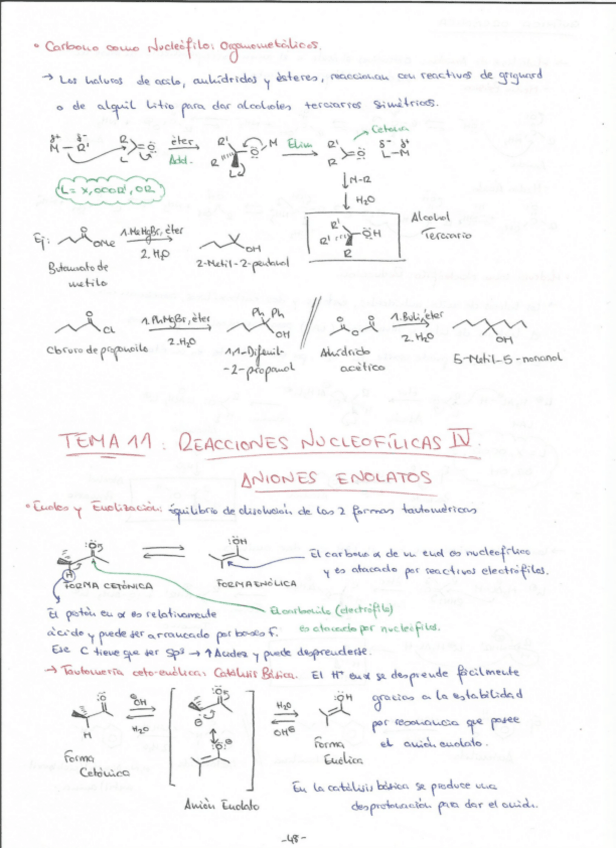 • Carbono como Nucleófilo: Organometálicos.
→ Los haluros de acilo, anhídridos y ésteres, reaccionan con reactivos de grignard
o de alquil litio para dar alcoholes terciarios simétricos.
Cetona
éter
Add.
Elim
L = X, OCOR', OR
M-R
H₂O
Alcohol
Terciario
Ej:
1. MeMgBr, éter
2. H₂O
Butanoato de
metilo
2-Metil-2-pentanol
1. PhMgBr, éter
2. H₂O
Cloruro de propanoilo
1,1-Difenil-
-2-propanol
1. BuLi, éter
2. H₂O
Anhídrido
acético
5-Metil-5-nonanol
TEMA 11: REACCIONES NUCLEOFÍLICAS IV.
ANIONES ENOLATOS
• Enoles y Enolización: Equilibrio de disolución de las 2 formas tautoméricas
FORMA CETÓNICA
FORMA ENÓLICA
El carbono α de un enol es nucleofílico
y es atacado por reactivos electrófilos.
El carbonilo (electrófilo)
es atacado por nucleófilos.
El protón en α es relativamente
ácido y puede ser arrancado por bases F.
Ese C tiene que ser sp³ → ↑ Acidez y puede desprenderse.
→ Tautomería ceto-enólica: Catálisis Básica.
El H⁺ en α se desprende fácilmente
gracias a la estabilidad
por resonancia que posee
el anión enolato.
⊖OH
H₂O
H₂O
OH⊖
Forma
Cetónica
Anión Enolato
Forma
Enólica
En la catálisis básica se produce una
desprotonación para dar el anión.
-48-